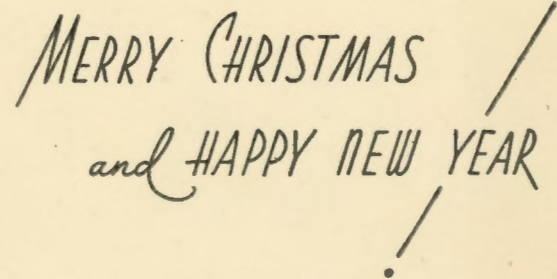 MERRY CHRISTMAS
and HAPPY NEW YEAR!